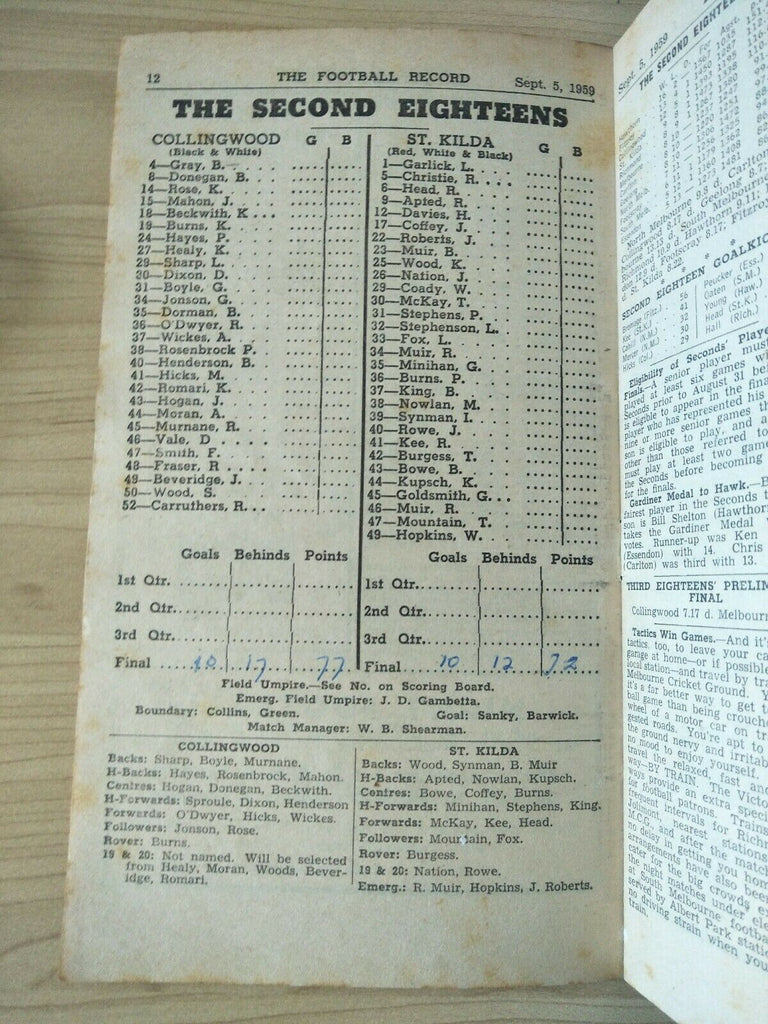 12 THE FOOTBALL RECORD Sept. 5, 1959
THE SECOND EIGHTEENS
COLLINGWOOD G B
(Black & White)
4—Gray, B.
8—Donegan, B.
14—Rose, K.
15—Mahon, J.
18—Beckwith, K
19—Burns, K.
24—Hayes, P.
27—Healy, K.
29—Sharp, L.
30—Dixon, D.
31—Boyle, G.
34—Jonson, G.
35—Dorman, B.
36—O'Dwyer, R.
37—Wickes, A.
38—Rosenbrock P.
40—Henderson, B.
41—Hicks, M.
42—Romari, K.
43—Hogan, J.
44—Moran, A.
45—Murnane, R.
46—Vale, D
47—Smith, F.
48—Fraser, R
49—Beveridge, J.
50—Wood, S.
52—Carruthers, R.
Goals Behinds Points
1st Qtr.
2nd Qtr.
3rd Qtr.
Final 10 17 77
ST. KILDA G B
(Red, White & Black)
1—Garlick, L.
5—Christie, R.
6—Head, R.
9—Apted, R.
12—Davies, H.
17—Coffey, J.
22—Roberts, J.
23—Muir, B.
25—Wood, K.
26—Nation, J.
29—Coady, W.
30—McKay, T.
31—Stephens, P.
32—Stephenson, L.
33—Fox, L.
34—Muir, R.
35—Minihan, G.
36—Burns. P.
37—King, B.
38—Nowlan, M.
39—Synman, I.
40—Rowe, J.
41—Kee, R.
42—Burgess, T.
43—Bowe, B.
44—Kupsch, K.
45—Goldsmith, G.
46—Muir, R.
47—Mountain, T.
49—Hopkins, W.
Goals Behinds Points
1st Qtr.
2nd Qtr.
3rd Qtr.
Final 10 12 72
Field Umpire.—See No. on Scoring Board.
Emerg. Field Umpire: J. D. Gambetta.
Boundary: Collins, Green. Goal: Sanky, Barwick.
Match Manager: W. B. Shearman.
COLLINGWOOD
Backs: Sharp, Boyle, Murnane.
H-Backs: Hayes, Rosenbrock, Mahon.
Centres: Hogan, Donegan, Beckwith.
H-Forwards: Sproule, Dixon, Henderson
Forwards: O'Dwyer, Hicks, Wickes.
Followers: Jonson, Rose.
Rover: Burns.
19 & 20: Not named. Will be selected
from Healy, Moran, Woods, Bever-
idge, Romari.
ST. KILDA
Backs: Wood, Synman, B. Muir
H-Backs: Apted, Nowlan, Kupsch.
Centres: Bowe, Coffey, Burns.
H-Forwards: Minihan, Stephens, King.
Forwards: McKay, Kee, Head.
Followers: Mountain, Fox.
Rover: Burgess.
19 & 20: Nation, Rowe.
Emerg.: R. Muir, Hopkins, J. Roberts.
Sept. 5, 1959
THE SECOND EIGHTEEN
SECOND EIGHTEEN GOALKIC
Peucker (Ess.)
Oaten (S.M.)
Young (Haw.)
Head (St.K.)
Hall (Rich.)
Eligibility of Seconds' Playe
Finals.—A senior player must
played at least six games wi
Seconds prior to August 31 be
is eligible to appear in the fina
player who has represented his
nine or more senior games th
son is eligible to play, and a
other than those referred to
must play at least two game
the Seconds before becoming
for the finals.
Gardiner Medal to Hawk.—B
fairest player in the Seconds t
son is Bill Shelton (Hawthor
takes the Gardiner Medal
votes. Runner-up was Ken
(Essendon) with 14. Chris
(Carlton) was third with 13.
THIRD EIGHTEENS' PRELIM
FINAL
Collingwood 7.17 d. Melbourn
Tactics Win Games.—And it's
tactics, too, to leave your ca
garage at home—or if possible
local station—and travel by tra
Melbourne Cricket Ground. Y
it's a far better way to get t
ball game than being crouche
wheel of a motor car on tr
gested roads. You're apt to
the ground nervy and irritab
no mood to enjoy yourself.
travel the relaxed, fast and
way—BY TRAIN. The Victo
ways provide an extra speci
for football patrons. Trains
frequent intervals for Richm
Jolimont, nearest stations
M.C.G. and after the match
no delay in getting you hom
arrangements have also been